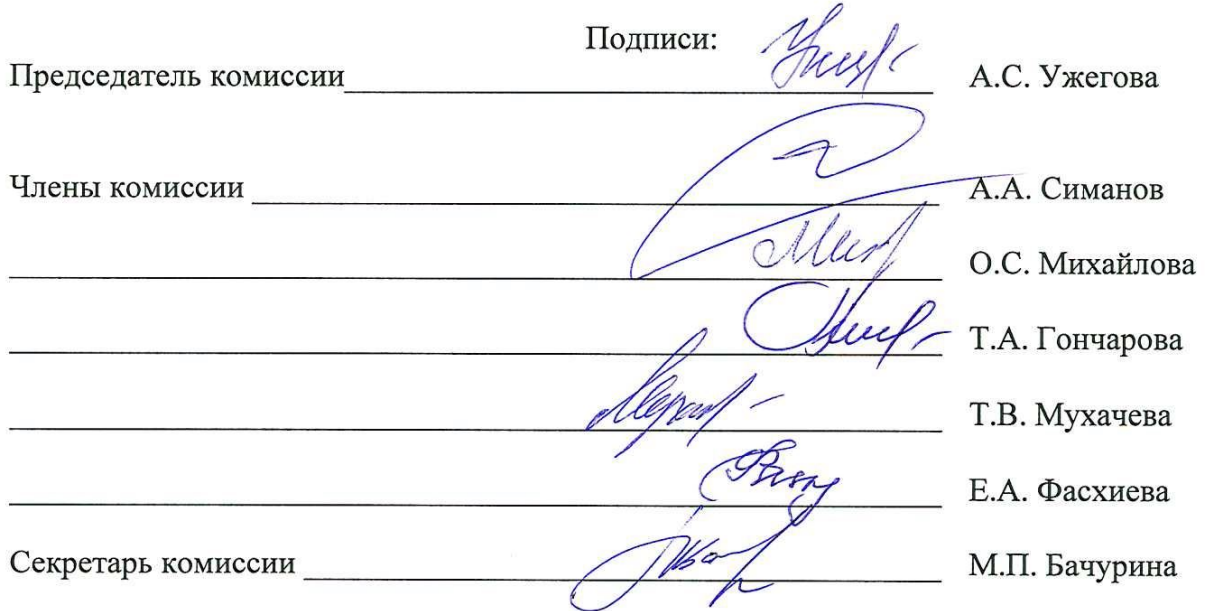 Подписи:
Председатель комиссии А.С. Ужегова
Члены комиссии А.А. Симанов
О.С. Михайлова
Т.А. Гончарова
Т.В. Мухачева
Е.А. Фасхиева
Секретарь комиссии М.П. Бачурина